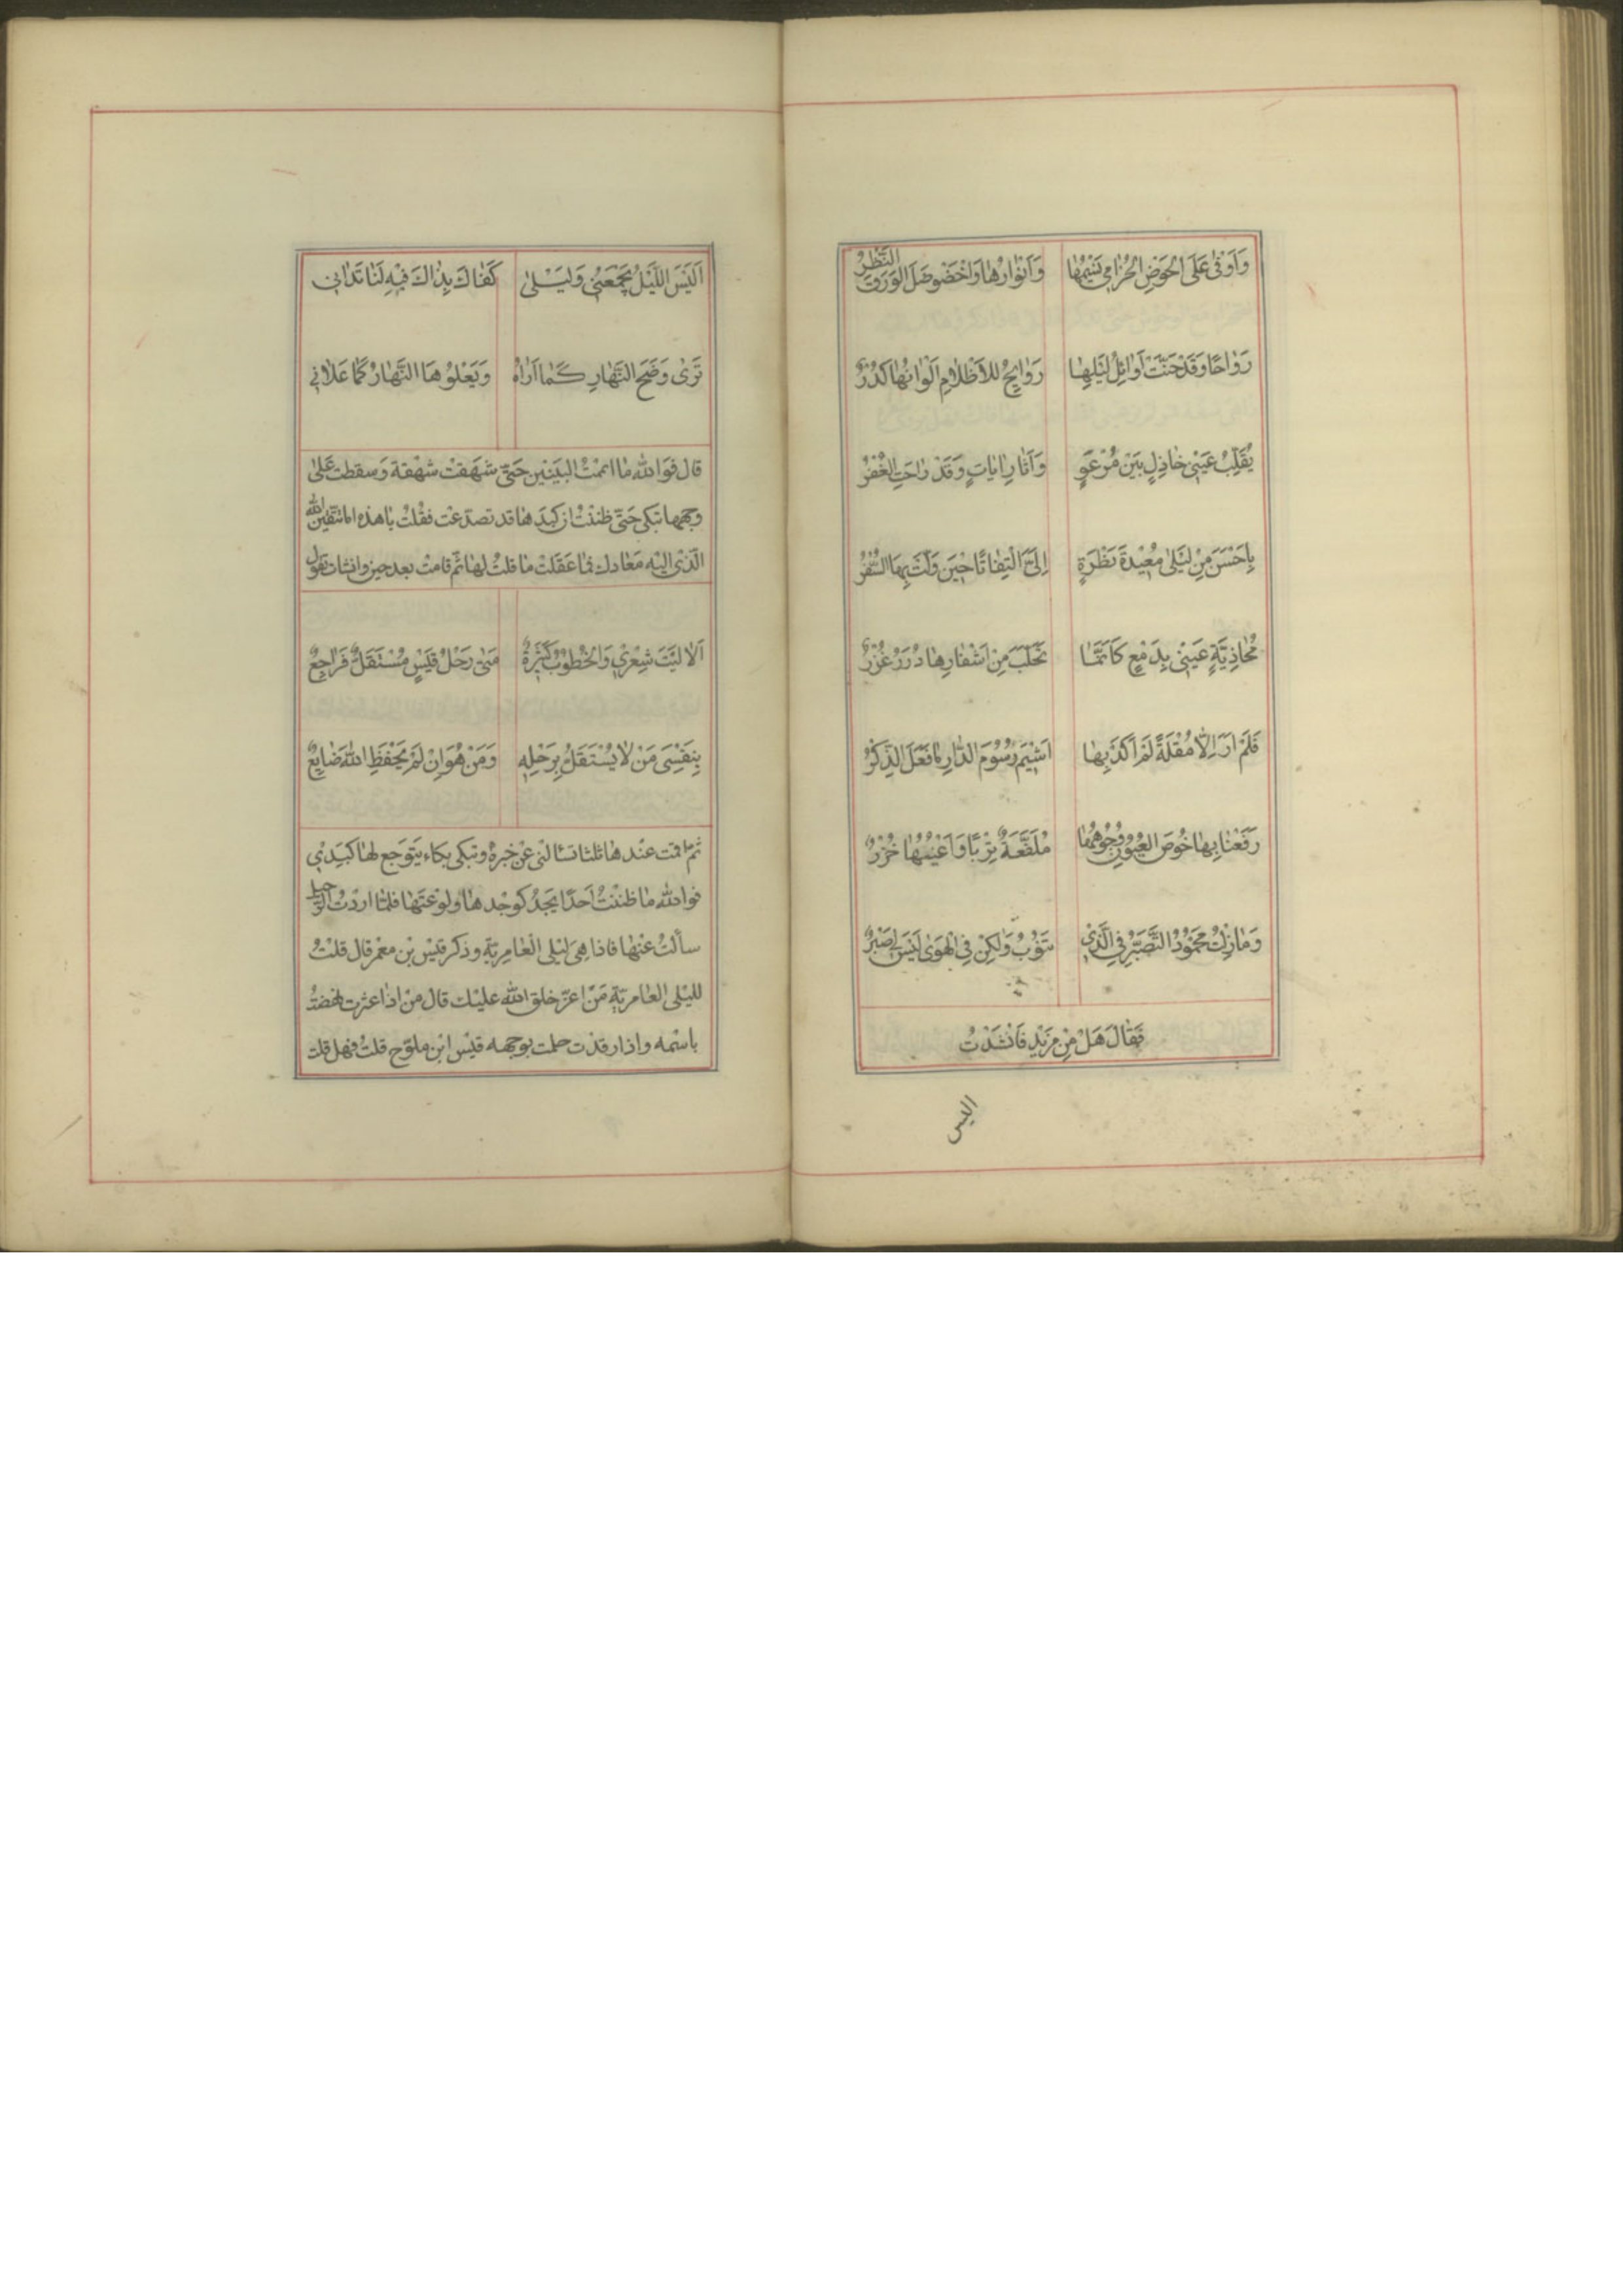 وَاَوْفٰى عَلَى الْحَوْضِ الْخُزٰامى نَسْيُمهٰا وَاَنْوٰارُهٰا وَاخْضَوْضَلَ الوَرَقُ النَّظِرُ
رَوٰاحًا وَقَدْ حَنَّتْ اَوٰائِلُ لَيْلِهٰا رَوٰايِحُ للاَظْلٰامِ اَلْوٰانُهٰا كُدْرُ
يُقَلِّبُ عَيْنَىْ خٰاذِلٍ بَيْنَ مُرْعَوٍ وَاٰثٰارِ اٰيٰاتٍ وَقَدْ رٰاحَتِ الْعُفْرُ
بِاَحْسَنَ مِنْ لَيْلٰى مُعْيٖدَةَ نَظْرَةٍ اِلَىَّ الْتِفٰاتًا حٖيْنَ وَلَّتْ بِهَا السَّفْرُ
مُحٰاذِيَةٍ عَيْنٖى بِدَمْعٍ كَاَنَّمٰا تَحَلَّبَ مِنْ اَشْفٰارِهٰا دُرَرٌ غُزْرُ
فَلَمْ اَرَ اِلّٰا مُقْلَةً لَمْ اَكَدْ بِهٰا اَشٖيْمُ رُسُوْمَ الدّٰارِ مٰا فَعَلَ الذِّكْرُ
رَفَعْنٰا بِهٰا خُوْصَ الْعُيُوْنِ وُجُوْهُهٰا مُلَفَّعَةٌ تِرْبًا وَاَعْيُنُهٰا خُزْرُ
وَمٰا زِلْتُ مَحْمُوْدُ التَّصَبُّرِ فِى الَّذٖى يَنُوْبُ وَلٰكِنْ فِى الْهَوٰى لَيْسَ لٖى صَبْرُ
فَقٰالَ هَلْ مِنْ مَزٖيْدٍ فَاَنْشَدْتُ
اليس
اَلَيْسَ اللَّيْلُ يَجْمَعُنٖى وَلَيْلٰى كَفٰاكَ بِذٰاكَ فٖيْهِ لَنٰا تَدٰانٖى
تَرٰى وَضَحَ النَّهٰارِ كَمٰا اَرٰاهُ وَيَعْلُوْهَا النَّهٰارُ كَمٰا عَلٰانٖى
قال فَوَاللّٰهِ مٰا اتممْتُ البَيْتَيْنِ حَتّىٰ شَهَقتْ شَهْقة وَسقطت عَلٰى
وجهها تبكى حَتّىٰ ظننتُ ان كبدَهٰا قد تصدّعت فقُلْتُ يٰا هٰذه امٰا تتّقين اللّٰه
الّذى اليْه مَعٰادك فمٰا عَقَلَتْ مٰا قلتُ لهٰا ثمّ قامتْ بعد حين وانشات تقول
اَلٰا لَيْتَ شِعْرٖى وَالْخُطُوْبُ كَثٖيْرَةٌ مَتٰى رَحْلُ قَيْسٍ مُسْتَقِلٌّ فَرٰاجِعُ
بِنَفْسِىْ مَنْ لٰا يُسْتَقَلُّ بِرَحْلِهٖ وَمَنْ هُوَ اِنْ لَمْ يَحْفَظِ اللّٰهُ ضٰايِعُ
ثم اقمت عندهٰا ثلثا تسئالنى عَنْ خبره وتبكى بكاء يتوَجع لهٰا كبدٖى
فوالله مٰا ظننْتُ اَحدًا يَجدُ كوجْدهٰا ولوْعتَهٰا فلمّٰا اردْتُ الرّحيل
سألتُ عنْهٰا فاذٰا هِىَ ليْلى الْعٰامِريّة وذكر قيْس بْن معْمر قال قلْتُ
لليْلى العٰامريّة مَنْ اعزّ خلق الله عليْك قال منْ اذٰا عثرت
باسْمه واذا رقدْت حلمت بوجهه قيْس ابْن ملوّح قلتُ فهل قلت